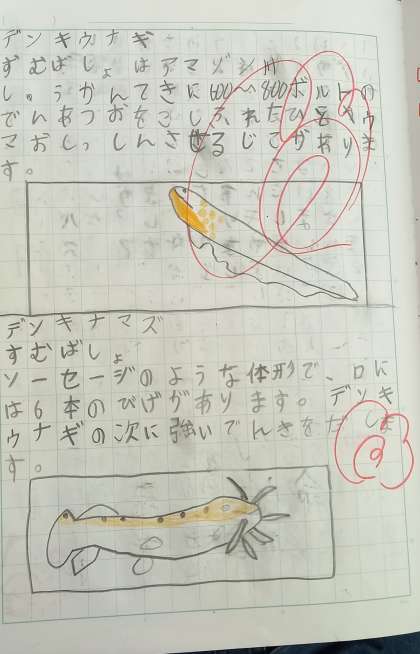 デンキウナギ
すむばしょはアマゾン川
し。うかんてきに600〜800ボルトの
でんあつおをこし、ふれたひとやウ
マおし。しんさせるじこがあります
す。
デンキナマズ
すむばしょ
ソーセージのような体形で、口に
は6本のひげがあります。デンキ
ウナギの次に強いでんきをだしま
す。